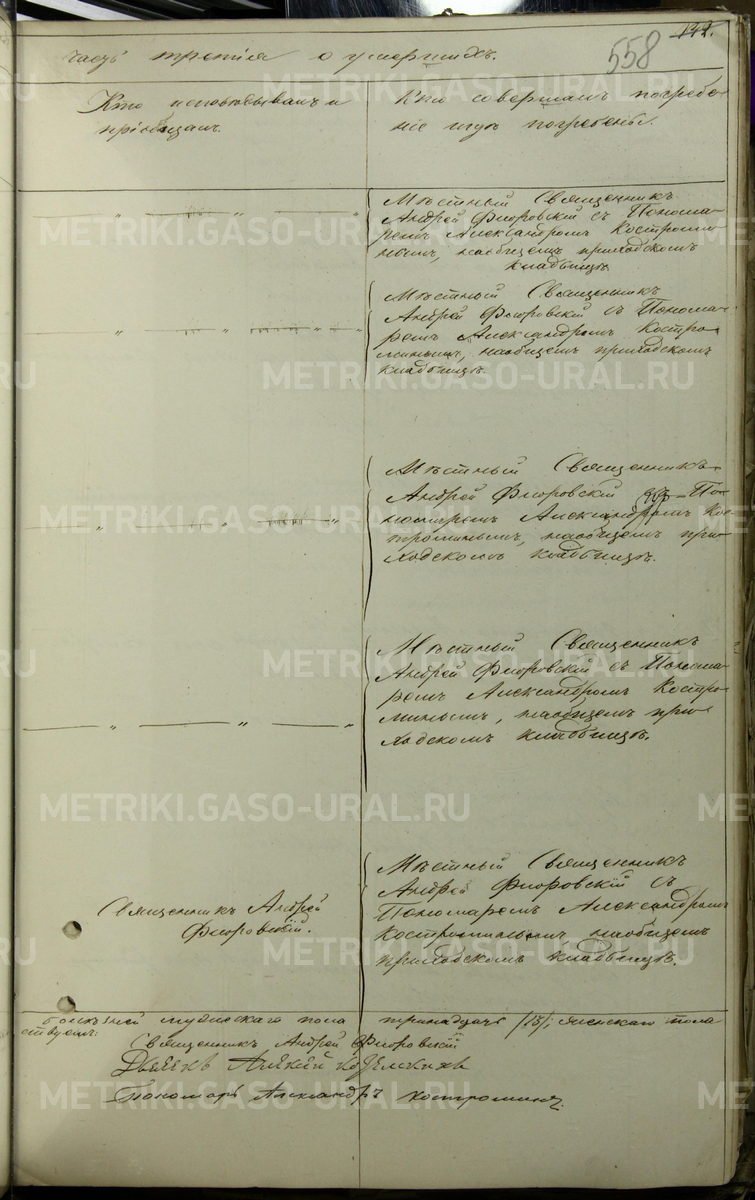 142.
558
часть третія о умершихъ.
Кто исповѣдывалъ и
пріобщалъ.
Кто совершалъ погребе-
ніе и гдѣ погребены.
Мѣстный Священникъ
Андрей Флоровскій съ Понома-
ремъ Александромъ Костроми-
нымъ, на общемъ приходскомъ
кладбищѣ.
Мѣстный Священникъ
Андрей Флоровскій съ Понома-
ремъ Александромъ Костро-
минымъ, на общемъ приходскомъ
кладбищѣ.
Мѣстный Священникъ
Андрей Флоровскій съ По-
номаремъ Александромъ Кос-
троминымъ, на общемъ при-
ходскомъ кладбищѣ.
Мѣстный Священникъ
Андрей Флоровскій съ Понома-
ремъ Александромъ Костро-
минымъ, на общемъ при-
ходскомъ кладбищѣ.
Священникъ Андрей
Флоровскій.
Мѣстный Священникъ
Андрей Флоровскій съ
Пономаремъ Александромъ
Костроминымъ на общемъ
приходскомъ кладбищѣ.
мужескаго пола тринадцать /13/, женскаго пола
Священникъ Андрей Флоровскій
Алексѣй
Пономарь Александръ Костроминъ.
METRIKI.GASO-URAL.RU
METRIKI.GASO-URAL.RU
METRIKI.GASO-URAL.RU
METRIKI.GASO-URAL.RU
METRIKI.GASO-URAL.RU
METRIKI.GASO-URAL.RU
METRIKI.GASO-URAL.RU
METRIKI.GASO-URAL.RU